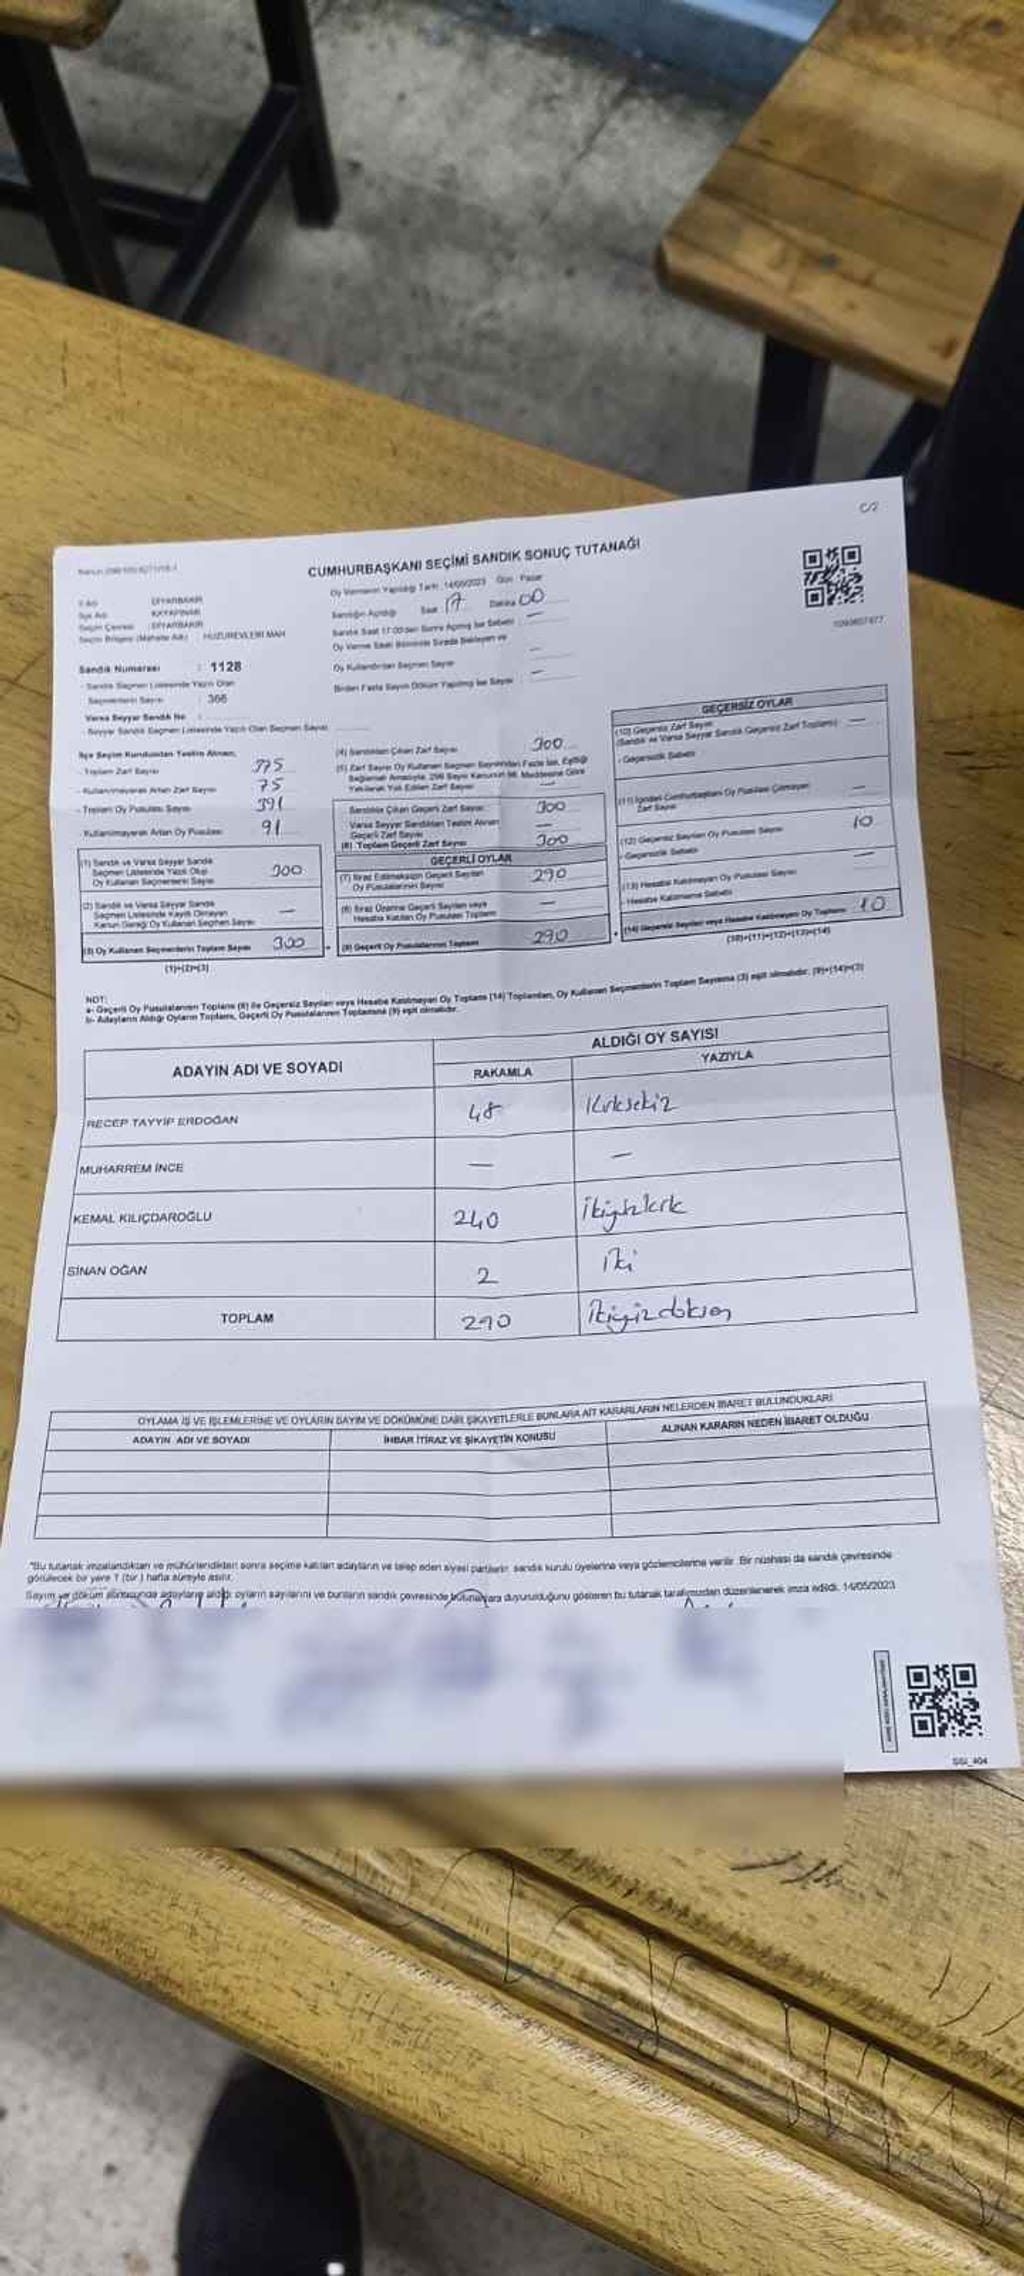 C/2
CUMHURBAŞKANI SEÇİMİ SANDIK SONUÇ TUTANAĞI
İl Adı : DİYARBAKIR
İlçe Adı : KAYAPINAR
Seçim Çevresi : DİYARBAKIR
Seçim Bölgesi (Mahalle Adı) : HUZUREVLERİ MAH
Oy Vermenin Yapıldığı Tarih :14/05/2023 Gün : Pazar
Sandığın Açıldığı Saat 17 Dakika 00
Sandık Saat 17:00'den Sonra Açılmış İse Sebebi : —
Oy Verme Saati Bitiminde Sırada Bekleyen ve
Oy Kullandırılan Seçmen Sayısı : —
Birden Fazla Sayım Döküm Yapılmış İse Sayısı : —
Sandık Numarası : 1128
- Sandık Seçmen Listesinde Yazılı Olan
Seçmenlerin Sayısı : 366
Varsa Seyyar Sandık No :
- Seyyar Sandık Seçmen Listesinde Yazılı Olan Seçmen Sayısı
İlçe Seçim Kurulundan Teslim Alınan;
- Toplam Zarf Sayısı 375
- Kullanılmayarak Artan Zarf Sayısı 75
- Toplam Oy Pusulası Sayısı 391
- Kullanılmayarak Artan Oy Pusulası 91
(1) Sandık ve Varsa Seyyar Sandık
Seçmen Listesinde Yazılı Olup
Oy Kullanan Seçmenlerin Sayısı 300
(2) Sandık ve Varsa Seyyar Sandık
Seçmen Listesinde Kayıtlı Olmayan
Kanun Gereği Oy Kullanan Seçmen Sayısı —
(3) Oy Kullanan Seçmenlerin Toplam Sayısı 300
(1)+(2)=(3)
(4) Sandıktan Çıkan Zarf Sayısı 300
(5) Zarf Sayısı Oy Kullanan Seçmen Sayısından Fazla İse, Eşitliği
Sağlamak Amacıyla, 298 Sayılı Kanunun 98. Maddesine Göre
Yakılarak Yok Edilen Zarf Sayısı —
Sandıkta Çıkan Geçerli Zarf Sayısı 300
Varsa Seyyar Sandıktan Teslim Alınan
Geçerli Zarf Sayısı —
(6) Toplam Geçerli Zarf Sayısı 300
GEÇERLİ OYLAR
(7) İtiraz Edilmeksizin Geçerli Sayılan
Oy Pusulalarının Sayısı 290
(8) İtiraz Üzerine Geçerli Sayılan veya
Hesaba Katılan Oy Pusulası Toplamı —
(9) Geçerli Oy Pusulalarının Toplamı 290
GEÇERSİZ OYLAR
(10) Geçersiz Zarf Sayısı
(Sandık ve Varsa Seyyar Sandık Geçersiz Zarf Toplamı) —
- Geçersizlik Sebebi:
(11) İçinden Cumhurbaşkanı Oy Pusulası Çıkmayan
Zarf Sayısı —
(12) Geçersiz Sayılan Oy Pusulası Sayısı 10
- Geçersizlik Sebebi:
(13) Hesaba Katılmayan Oy Pusulası Sayısı —
- Hesaba Katılmama Sebebi:
(14) Geçersiz Sayılan veya Hesaba Katılmayan Oy Toplamı 10
(10)+(11)+(12)+(13)=(14)
NOT:
a- Geçerli Oy Pusulalarının Toplamı (9) ile Geçersiz Sayılan veya Hesaba Katılmayan Oy Toplamı (14) Toplamları, Oy Kullanan Seçmenlerin Toplam Sayısına (3) eşit olmalıdır. (9)+(14)=(3)
b- Adayların Aldığı Oyların Toplamı, Geçerli Oy Pusulalarının Toplamına (9) eşit olmalıdır.
ADAYIN ADI VE SOYADI
ALDIĞI OY SAYISI
RAKAMLA YAZIYLA
RECEP TAYYİP ERDOĞAN 48 Kırksekiz
MUHARREM İNCE — —
KEMAL KILIÇDAROĞLU 240 İkiyüzkırk
SİNAN OĞAN 2 iki
TOPLAM 290 İkiyüzdoksan
OYLAMA İŞ VE İŞLEMLERİNE VE OYLARIN SAYIM VE DÖKÜMÜNE DAİR ŞİKAYETLERLE BUNLARA AİT KARARLARIN NELERDEN İBARET BULUNDUKLARI
ADAYIN ADI VE SOYADI İHBAR İTİRAZ VE ŞİKAYETİN KONUSU ALINAN KARARIN NEDEN İBARET OLDUĞU
*Bu tutanak imzalandıktan ve mühürlendikten sonra seçime katılan adayların ve talep eden siyasi partilerin sandık kurulu üyelerine veya gözlemcilerine verilir. Bir nüshası da sandık çevresinde
görülecek bir yere 1 (bir) hafta süreyle asılır.
Sayım ve döküm sonucunda adayların aldığı oyların sayılarını ve bunların sandık çevresinde bulunanlara duyurulduğunu gösteren bu tutanak tarafımızdan düzenlenerek imza edildi. 14/05/2023